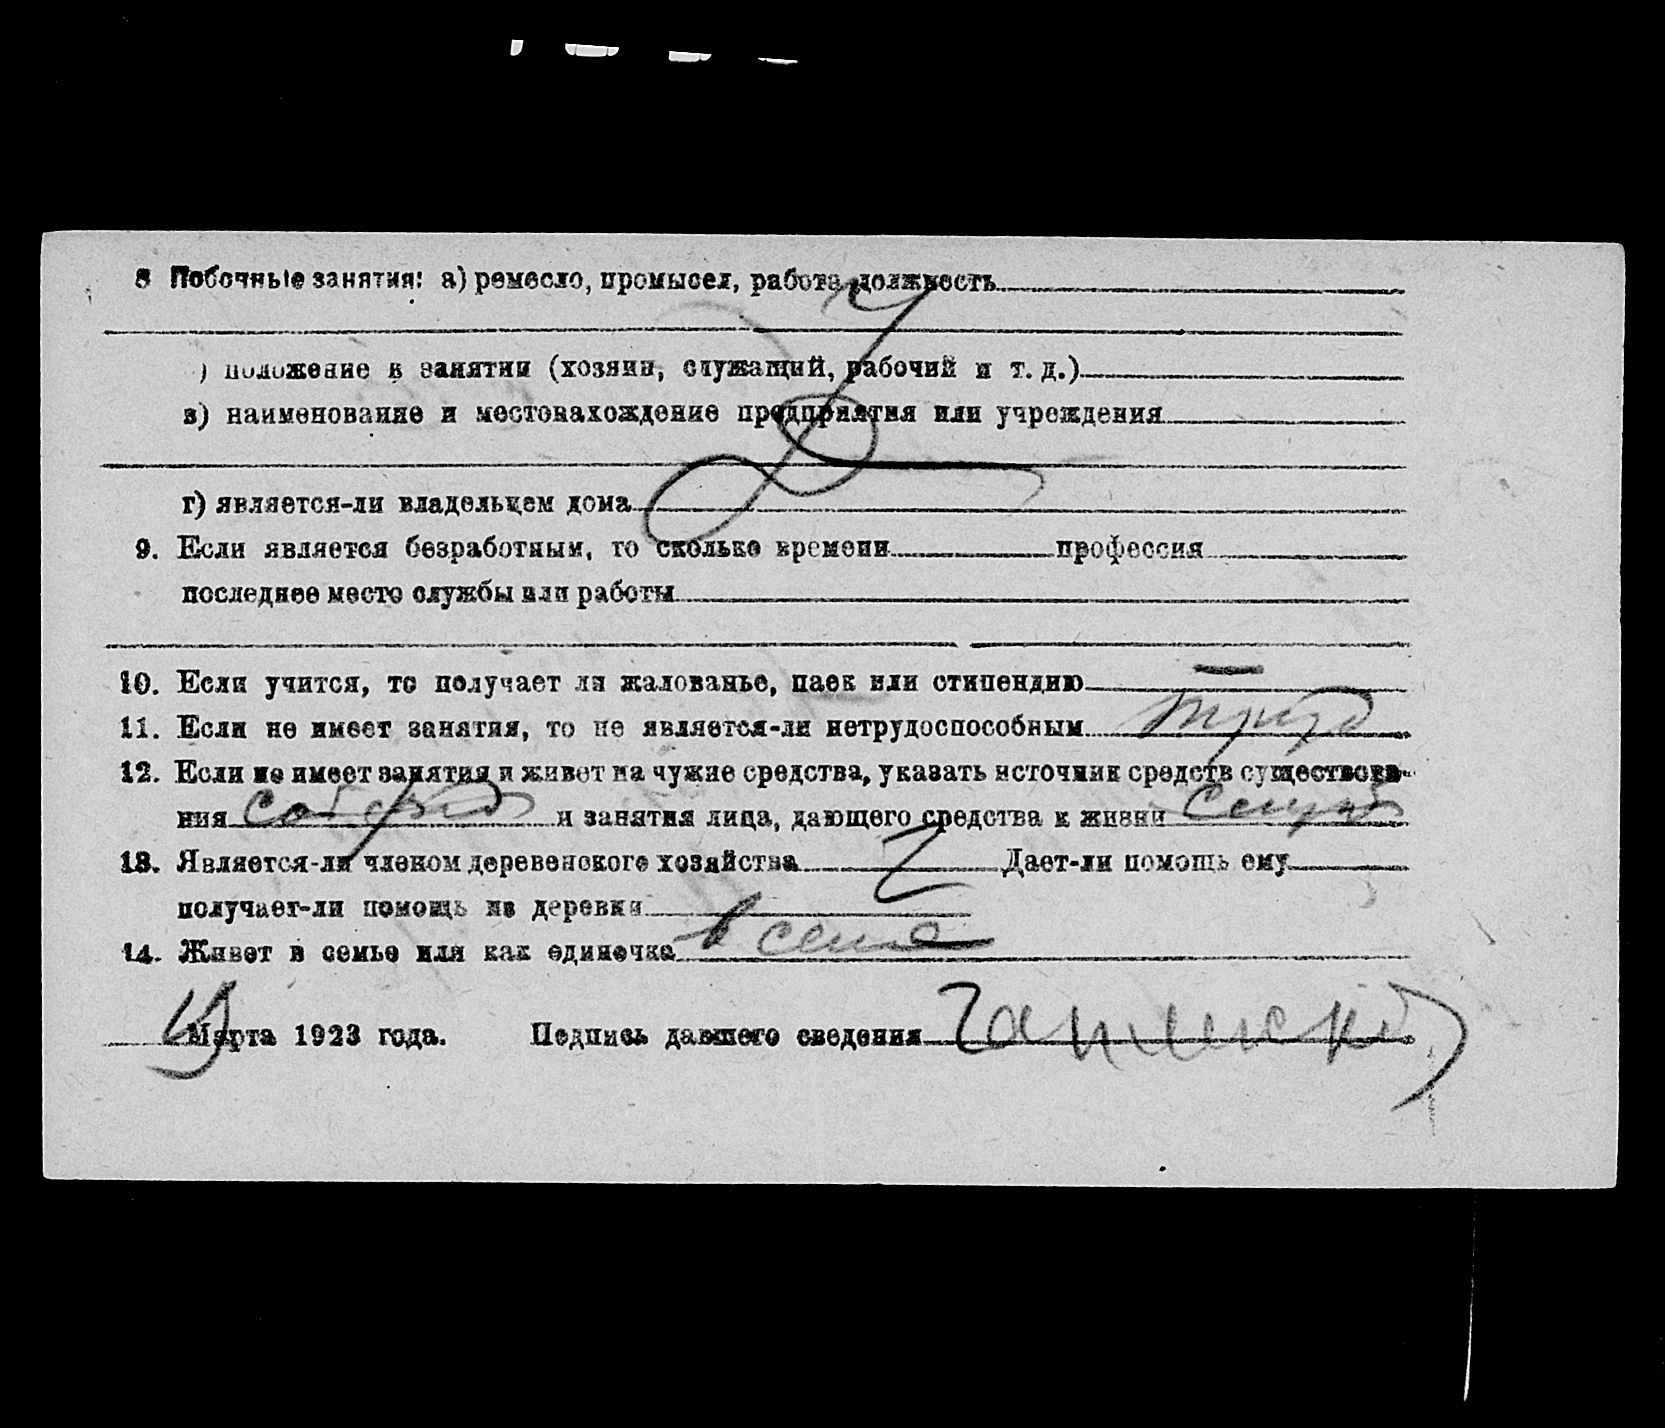 8 Побочные занятия: а) ремесло, промысел, работа должность
) положение в занятии (хозяин, служащий, рабочий и т. д.)
в) наименование и местонахождение предприятия или учреждения
г) является-ли владельцем дома
9. Если является безработным, то сколько времени профессия
последнее место службы или работы
10. Если учится, то получает ли жалованье, паек или стипендию —
11. Если не имеет занятия, то не является-ли нетрудоспособным
12. Если не имеет занятия и живет на чужие средства, указать источник средств существова-
ния и занятия лица, дающего средства к жизни
13. Является-ли членом деревенского хозяйства Дает-ли помощь ему
получает-ли помощь из деревни
14. Живет в семье или как единочка в семье
Марта 1923 года. Подпись давшего сведения